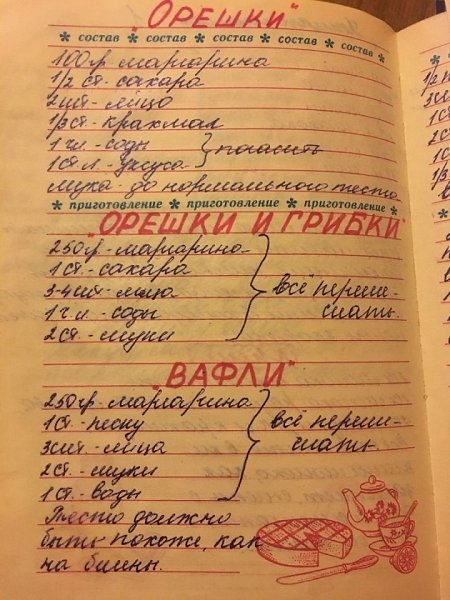 "ОРЕШКИ"
* состав * состав * состав * состав * состав *
100гр. маргарина
1/2 ст. сахара
2шт. яйцо
1/3 ст. крахмал
1 ч.л. соды } погасить
1 ст. л. уксуса
мука до нормального теста
* приготовление * приготовление * приготовление *
"ОРЕШКИ И ГРИБКИ"
250гр. маргарина
1 ст. сахара
3-4шт. яйца } всё переме-
1 ч. л. соды шать.
2 ст. муки
"ВАФЛИ"
250гр. маргарина
1 ст. песку } всё переме-
3шт. яйца шать.
2 ст. муки
1 ст. воды
Тесто должно
быть похоже, как
на блины.